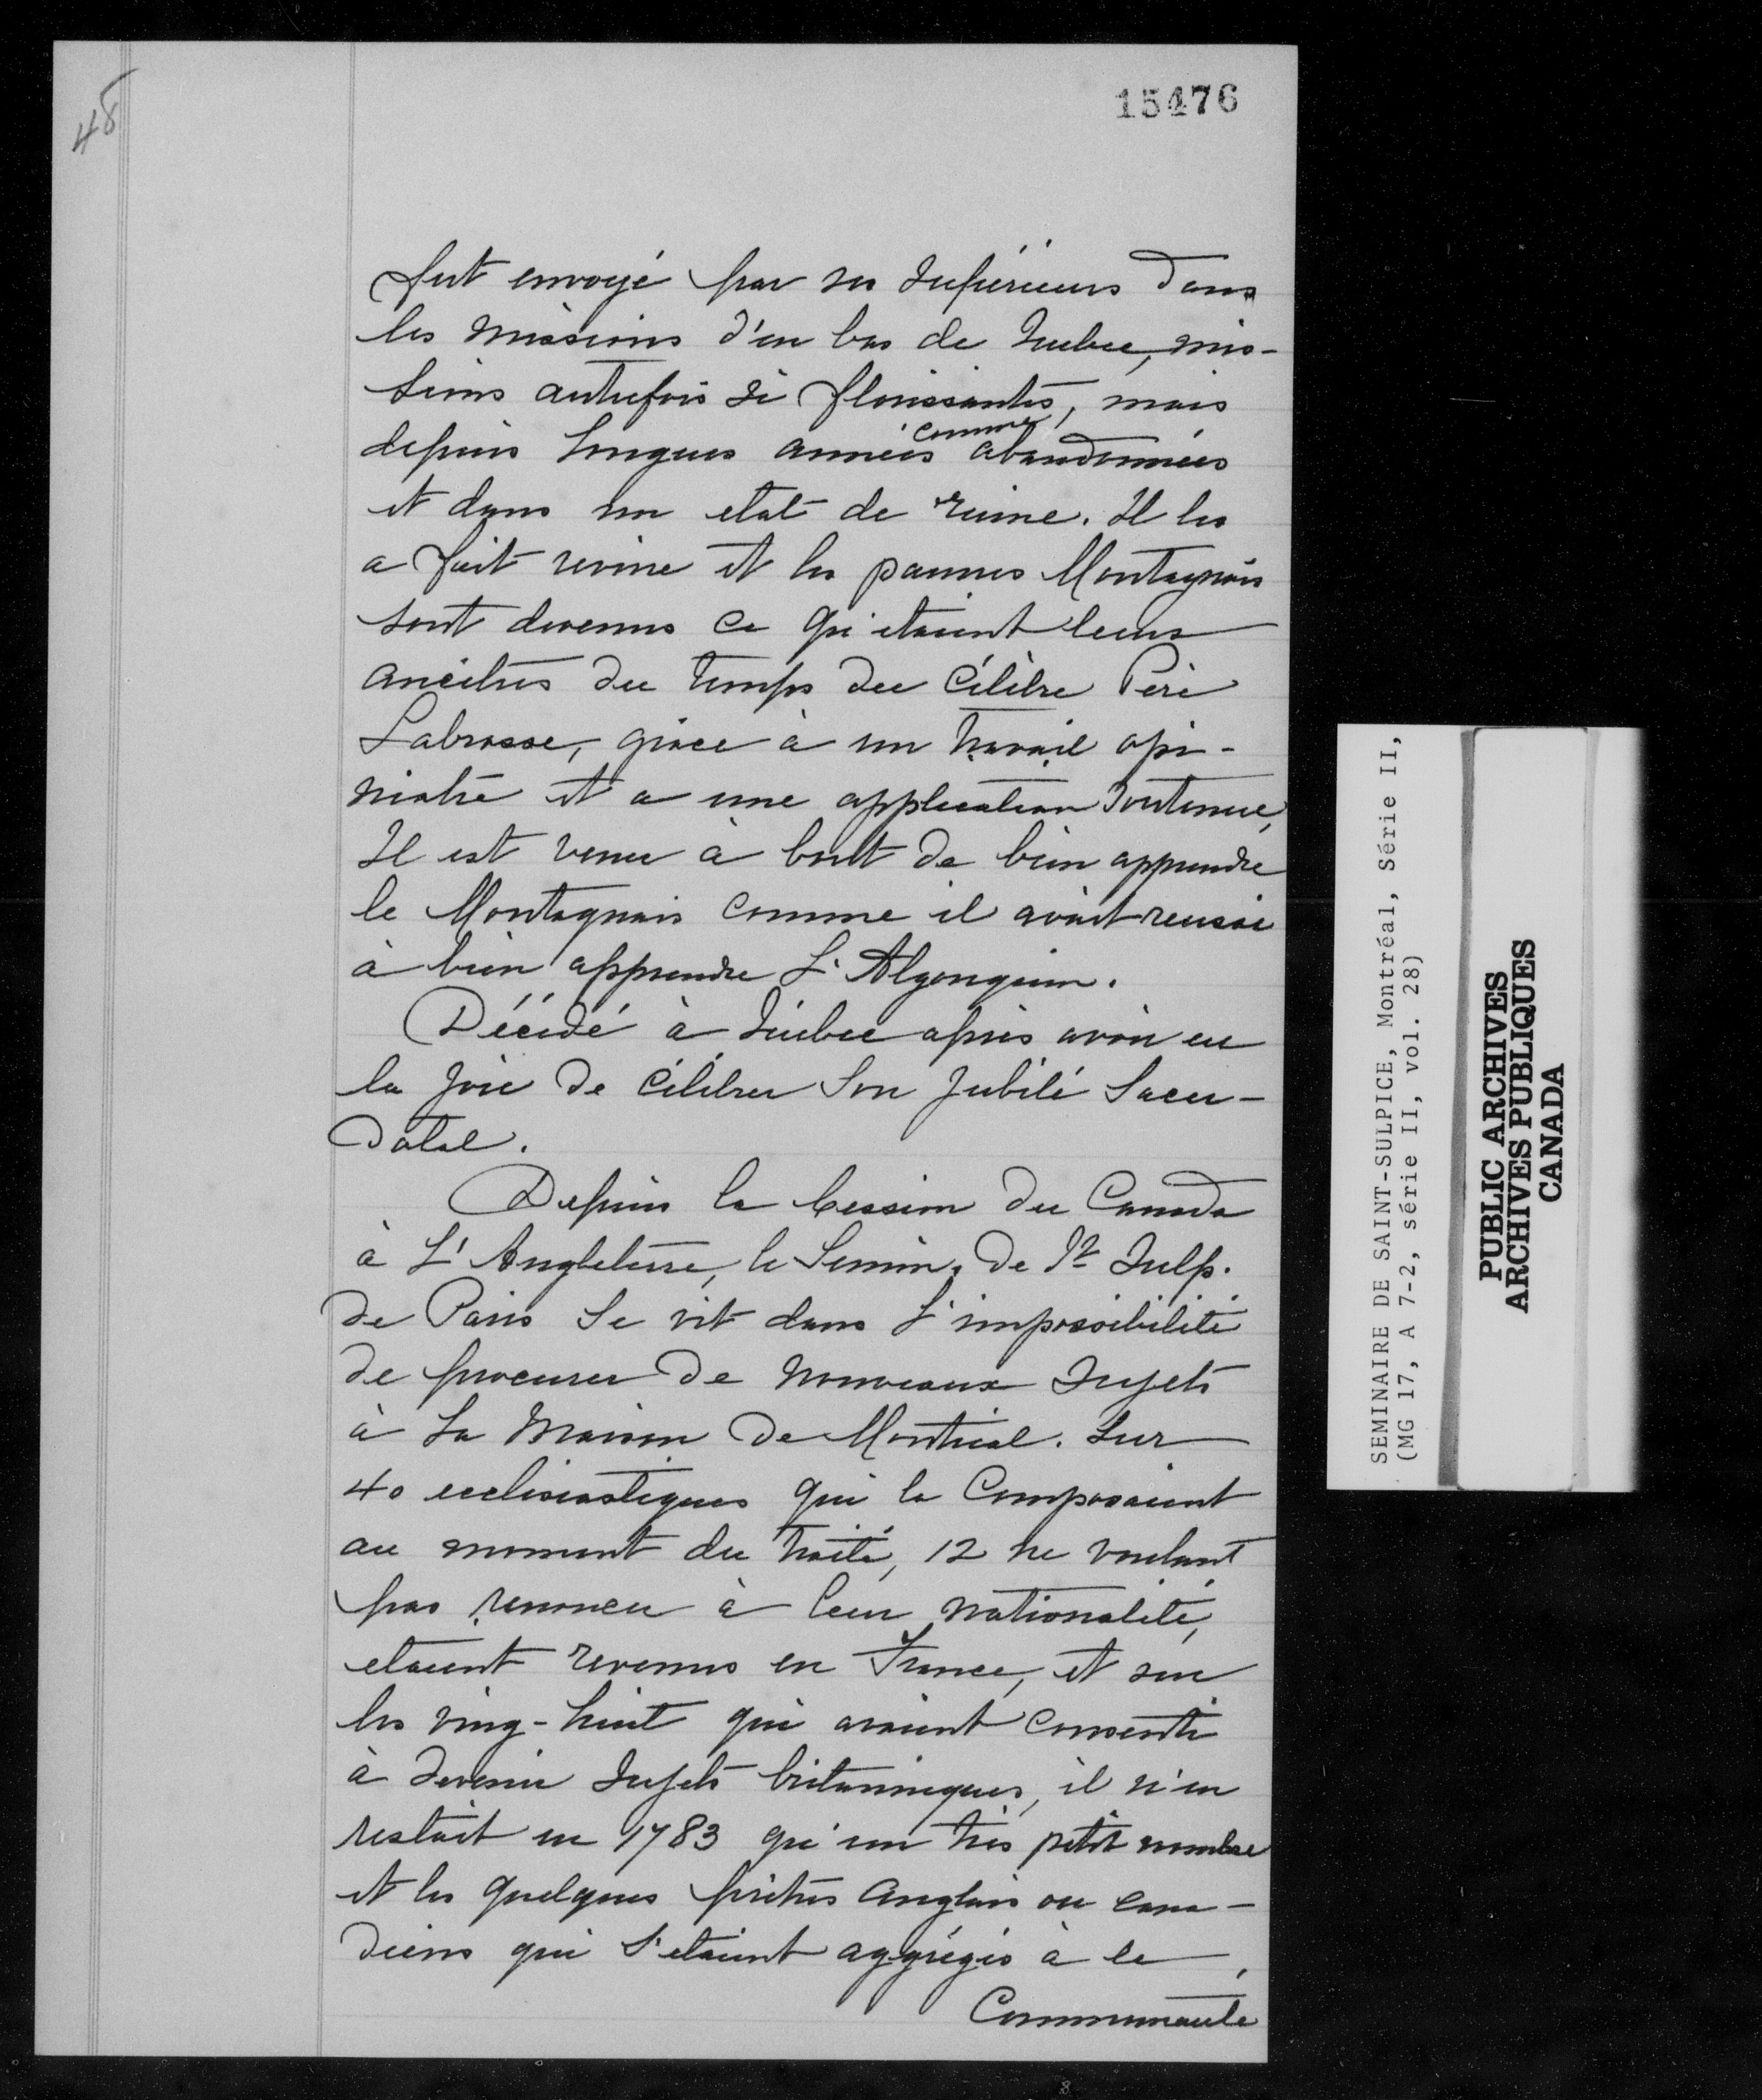 48
15476
fut envoyé par ses Supérieurs dans
les missions d'en bas de Quebec, mis-
sions autrefois si florissantes, mais
comme
depuis longues années abandonnées
et dans un etat de ruine. Il les
a fait revivre et les pauvres Montagnais
sont devenus ce qu'etaient leurs
ancêtres du temps du Célèbre Père
Labrosse, grâce à un travail opi-
niatre et a une application soutenue,
Il est venu à bout de bien apprendre
le Montagnais comme il avait reussi
à bien apprendre L'Algonquin.
Décédé à Québec après avoir eu
la joie de célébrer son Jubilé Sacer-
dotal.
Depuis la Cession du Canada
à L'Angleterre, le Semin. de St Sulp.
de Paris se vit dans l'impossibilité
de procurer de nouveaux Sujets
à La Maison de Montréal. Sur
40 ecclésiastiques qui la Composaient
au moment du traité, 12 ne voulant
pas renoncer à leur nationalité,
etaient revenus en France, et sur
les ving-huit qui avaient consenti
à devenir Sujets britanniques, il n'en
restait en 1783 qu'un très petit nombre
et les quelques prêtres Anglais ou Cana-
diens qui s'etaient aggrégés à la
Communauté
SEMINAIRE DE SAINT-SULPICE, Montréal, Série II,
(MG 17, A 7-2, série II, vol. 28)
PUBLIC ARCHIVES
ARCHIVES PUBLIQUES
CANADA
8